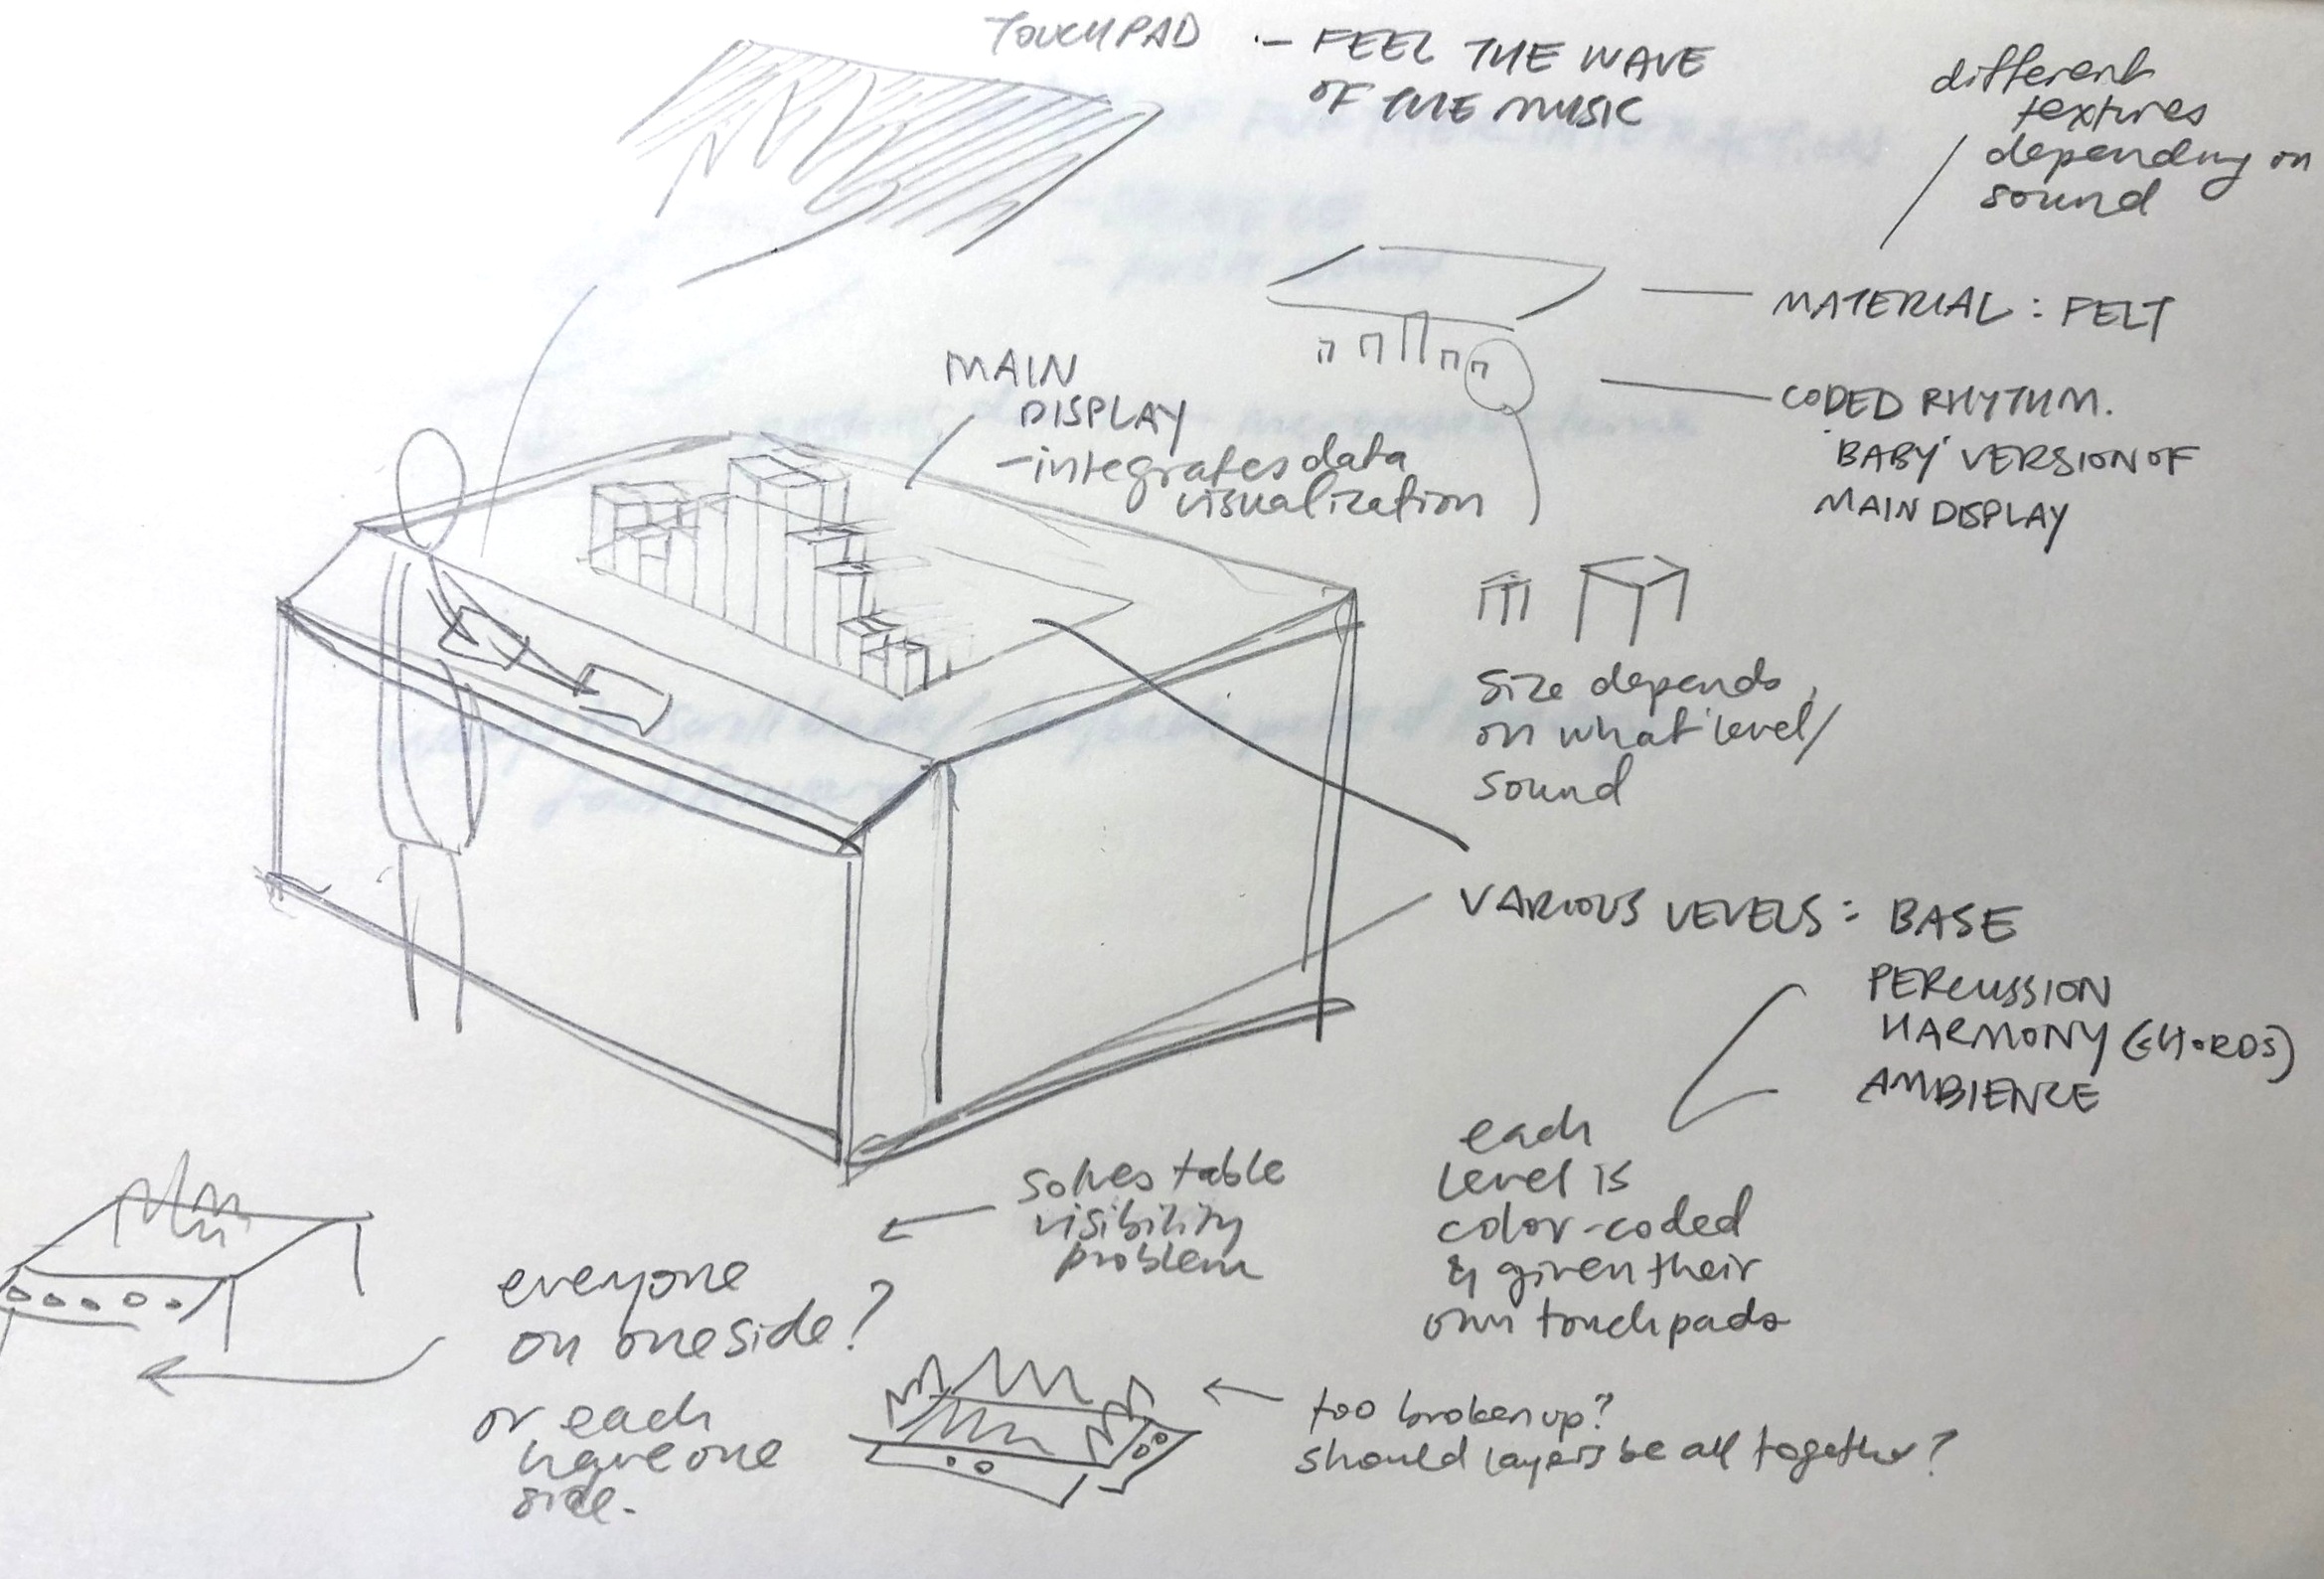 TOUCHPAD - FEEL THE WAVE
OF THE MUSIC
different
textures
depending on
sound
MATERIAL : FELT
CODED RHYTHM.
'BABY' VERSION OF
MAIN DISPLAY
MAIN
DISPLAY
- integrates data
visualization
size depends
on what level/
sound
VARIOUS LEVELS : BASE
PERCUSSION
HARMONY (CHORDS)
AMBIENCE
each
level is
color-coded
& given their
own touchpads
solves table
visibility
problem
everyone
on one side?
or each
have one
side.
too broken up?
should layers be all together?